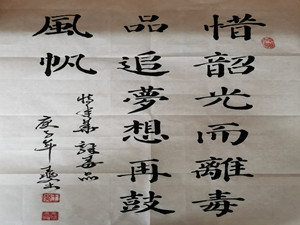 惜韶光而離毒
品追夢想再鼓
風帆
惜年華 品
庚子年